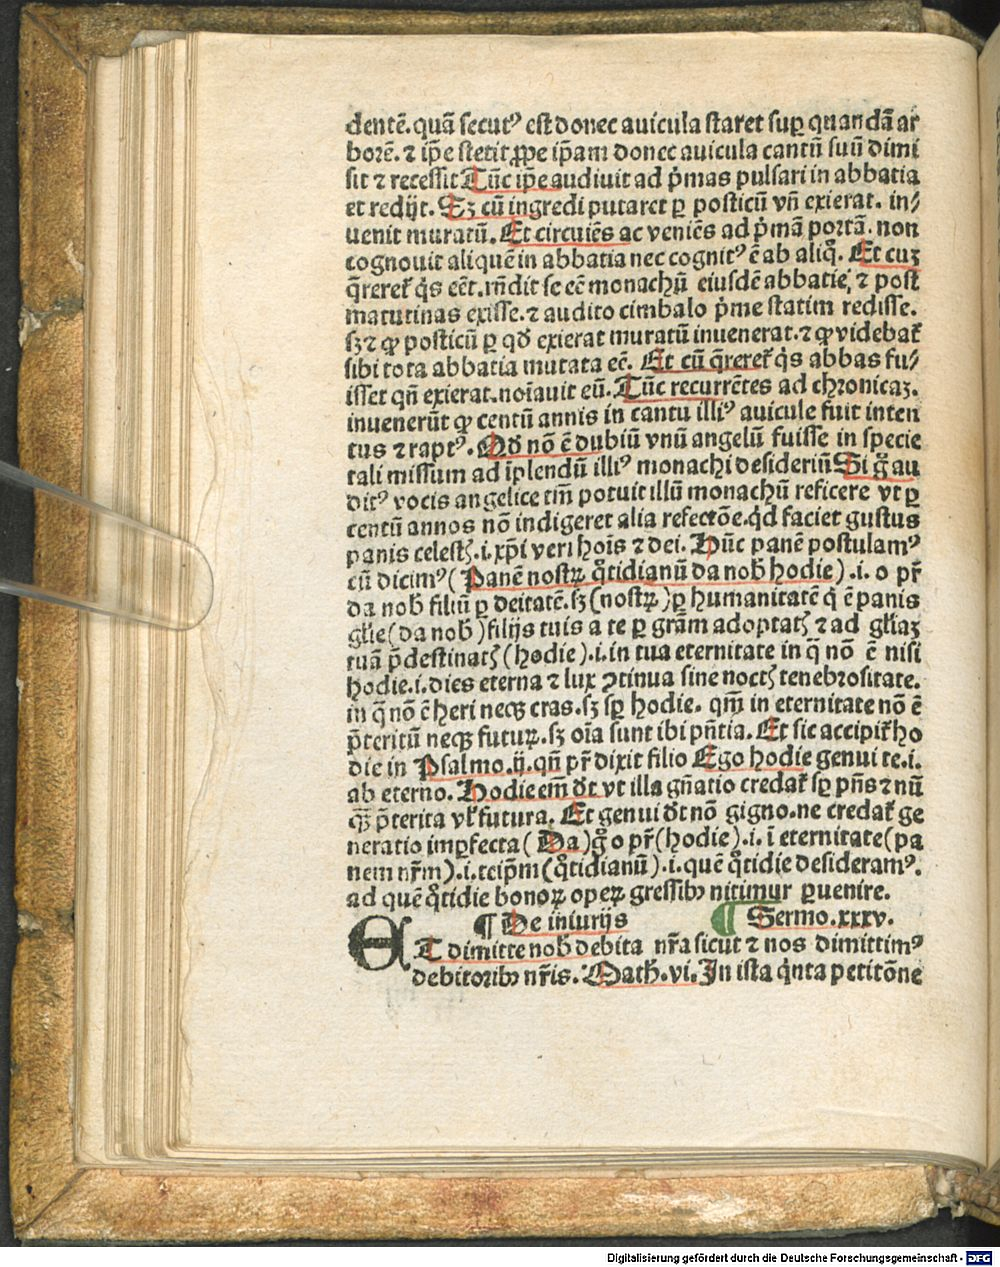 dentē. quā secutꝰ est donec auicula staret suꝑ quandā ar
borē. ⁊ ip̄e stetit ꝓpe ip̄am donec auicula cantū suū dimi
sit ⁊ recessit Tūc ip̄e audiuit ad p̄mas pulsari in abbatia
et redijt. Sꝫ cū ingredi putaret ꝑ posticū vn̄ exierat. in/
uenit muratū. Et circuiēs ac veniēs ad p̄mā portā. non
cognouit aliquē in abbatia nec cognitꝰ ē ab aliq̊. Et cuꝫ
q̄reret̉ q̇s eēt. rn̄dit se eē monachū eiusdē abbatie, ⁊ post
matutinas exisse. ⁊ audito cimbalo p̄me statim redisse.
sꝫ ⁊ ꝙ posticū ꝑ qd̄ exierat muratū inuenerat. ⁊ ꝙ videbat̉
sibi tota abbatia mutata eē. Et cū q̄reret̉ q̇s abbas fu/
isset qn̄ exierat. noīauit eū. Tūc recurrētes ad chronicaꝫ.
inuenerūt ꝙ centū annis in cantu illiꝰ auicule fuit inten
tus ⁊ raptꝰ. Qd̄ nō ē dubiū vnū angelū fuisse in specie
tali missum ad īplendū illiꝰ monachi desideriū Si g̊ au
ditꝰ vocis angelice tm̄ potuit illū monachū reficere vt ꝑ
centū annos nō indigeret alia refectōe. q̇d faciet gustus
panis celestꝭ. i. xp̄i veri hoīs ⁊ dei. Hūc panē postulamꝰ
cū dicimꝰ (Panē nostꝝ q̊tidianū da nob̄ hodie). i. o pr̄
da nob̄ filiū ꝑ deitatē. sꝫ (nostꝝ) ꝑ humanitatē q̇ ē panis
gl̄ie (da nob̄) filijs tuis a te ꝑ grām adoptatꝭ ⁊ ad gl̄iaꝫ
tuā p̄destinatꝭ (hodie). i. in tua eternitate in q̄ nō ē nisi
hodie. i. dies eterna ⁊ lux ꝯtinua sine noctꝭ tenebrositate.
in q̄ nō ē heri neqꝫ cras. sꝫ sꝑ hodie. qm̄ in eternitate nō ē
p̄teritū neqꝫ futuꝝ. sꝫ oīa sunt ibi pn̄tia. Et sic accipit̉ ho
die in Psalmo. ij. qn̄ pr̄ dixit filio Ego hodie genui te. i.
ab eterno. Hodie em̄ dt̄ vt illa gn̄atio credat̉ sꝑ pn̄s ⁊ nū
qꝫ p̄terita vl̓ futura. Et genui dt̄ nō gigno. ne credat̉ ge
neratio imꝑfecta (Da) g̊ o pr̄ (hodie). i. ī eternitate (pa
nem nr̄m). i. teip̄m (q̊tidianū). i. quē q̊tidie desideramꝰ.
ad quē q̊tidie bonoꝝ opeꝝ gressibꝫ nitimur ꝑuenire.
¶ De iniurijs ¶ Sermo. xxxv.
ET dimitte nob̄ debita nr̄a sicut ⁊ nos dimittimꝰ
debitoribꝫ nr̄is. Math̄. vi. In ista q̇nta petitōne
Digitalisierung gefördert durch die Deutsche Forschungsgemeinschaft - DFG